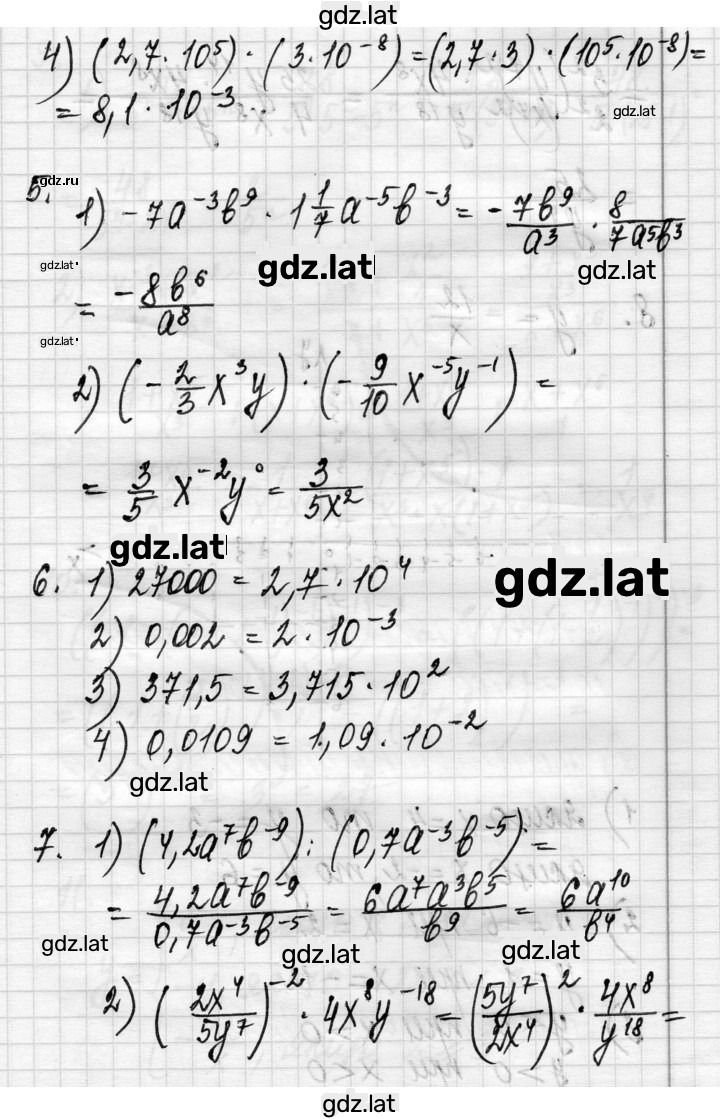 gdz.lat
4) (2,7 · 10⁵) · (3 · 10⁻⁸) = (2,7 · 3) · (10⁵ · 10⁻⁸) =
= 8,1 · 10⁻³.
gdz.lat
gdz.ru
5. 1) -7a⁻³b⁹ · 1 1/7 a⁻⁵b⁻³ = - 7b⁹/a³ · 8/7a⁵b³
gdz.lat gdz.lat gdz.lat
= -8b⁶/a⁸
gdz.lat
2) (- 2/3 x³y) · (- 9/10 x⁻⁵y⁻¹) =
= 3/5 x⁻²y⁰ = 3/5x²
gdz.lat gdz.lat
6. 1) 27000 = 2,7 · 10⁴
2) 0,002 = 2 · 10⁻³
3) 371,5 = 3,715 · 10²
4) 0,0109 = 1,09 · 10⁻²
gdz.lat
7. 1) (4,2a⁷b⁻⁹) : (0,7a⁻³b⁻⁵) =
= 4,2a⁷b⁻⁹/0,7a⁻³b⁻⁵ = 6a⁷a³b⁵/b⁹ = 6a¹⁰/b⁴
gdz.lat gdz.lat gdz.lat
2) (2x⁴/5y⁷)⁻² · 4x⁸y⁻¹⁸ = (5y⁷/2x⁴)² · 4x⁸/y¹⁸ =
gdz.lat